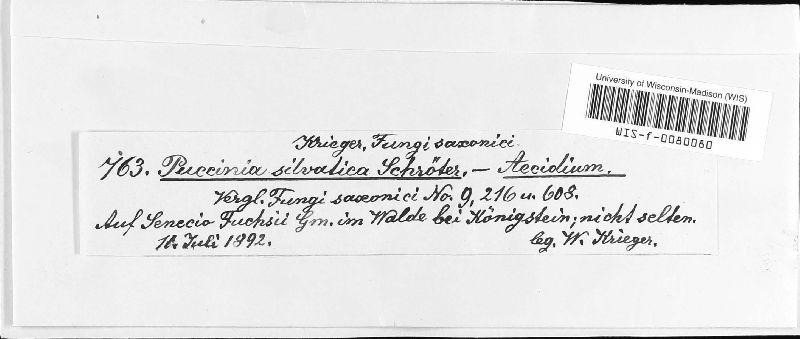 University of Wisconsin-Madison (WIS)
WIS-f-0080080
Krieger, Fungi saxonici
763. Puccinia silvatica Schröter. – Aecidium.
Vergl. Fungi saxonici No. 9, 216 u. 608.
Auf Senecio Fuchsii Gm. im Walde bei Königstein; nicht selten.
10. Juli 1892.
leg. W. Krieger.